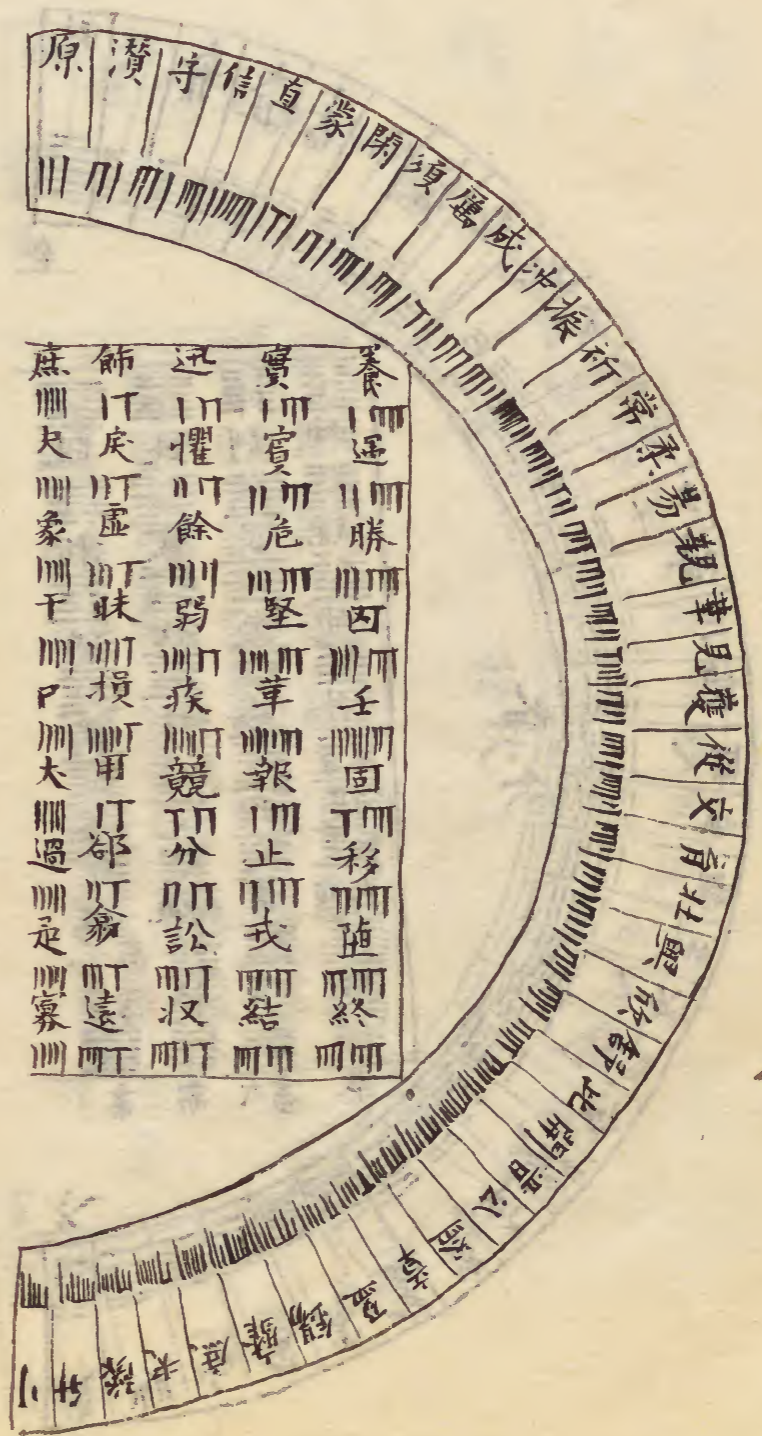 原
濽
守
信
直
蒙
閑
須
厲
成
冲
振
祈
常
柔
易
親
華
見
獲
從
交
育
壯
興
欣
舒
比
開
晉
公
益
章
盈
錫
靡
庶
夬
豫
升
養遇勝囚壬固移堕終
實賓危堅革報止戎結
迅懼餘弱疾競分訟収
飾戾虛昧損用郤翕遠
庶夬象干尸大過疋寡